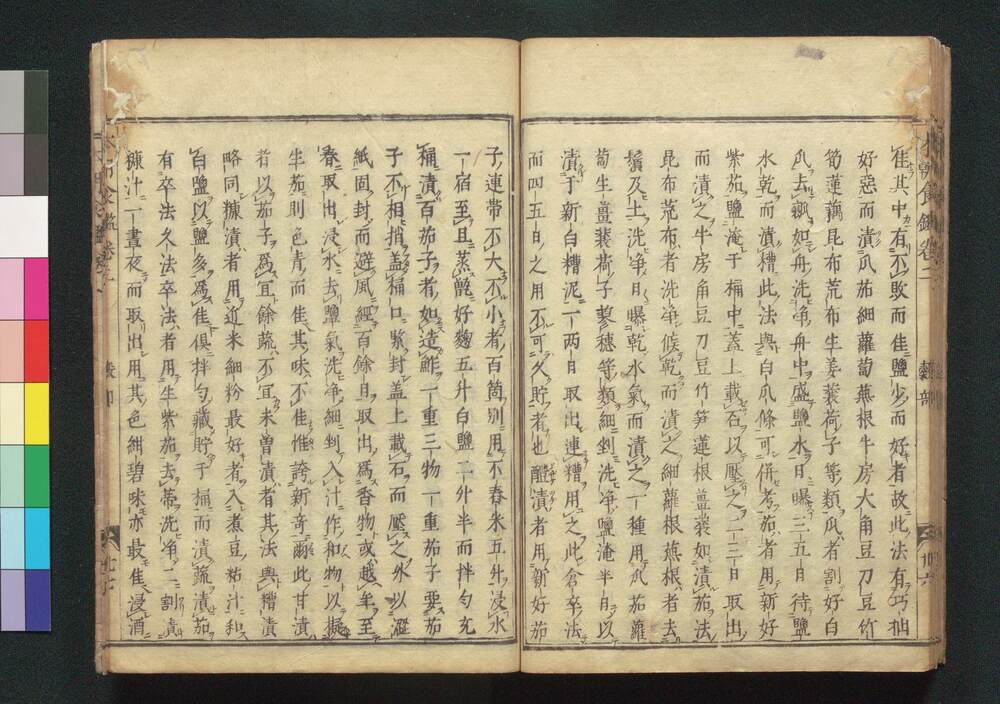 佳其中有不敗而佳鹽少而好者故此法有巧拙
好惡而漬瓜茄細蘿蔔蕪根牛房大角豆刀豆竹
筍蓮藕昆布荒布生姜蘘荷子等類瓜者割好白
瓜去瓤如舟洗淨舟中盛鹽水日曝三五日待鹽
水乾而漬糟此法與白瓜條可併考茄者用新好
紫茄鹽淹于桶中蓋上載石以壓之一二三日取出
而漬之牛房角豆刀豆竹笋蓮根薑蘘如漬茄法
昆布荒布者洗淨候乾而漬之細蘿根蕪根者去
鬚及土洗淨日曝乾水氣而漬之一種用瓜茄蘿
蔔生薑蘘荷子蓼穗等類細剉洗淨鹽淹半日以
漬于新白糟泥一兩日取出連糟用之此倉卒法
而四五日之用不可久貯者也醴漬者用新好茄
子連帶不大不小者百箇別用不舂米五升浸水
一宿至旦蒸籠好麴五升白鹽二升半而拌勻充
桶漬百茄子者如造鮓一重三物一重茄子要茄
子不相捎蓋桶口緊封蓋上載石而壓之外以澀
紙固封而避風經百餘日取出爲香物或越年至
春取出浸水去鹽氣洗淨細剉入汁作和物以擬
生茄則色青而佳其味不佳惟誇新奇爾此甘漬
者以茄子爲宜餘蔬不宜未曽漬者其法與糟漬
略同糠漬者用近米細粉最好者入煮豆粘汁和
白鹽以鹽多爲佳俱拌勻藏貯于桶而漬蔬漬茄
有卒法久法卒法者用生紫茄去蒂洗淨二割漬
糠汁一晝夜而取出用其色紺碧味亦最佳浸酒